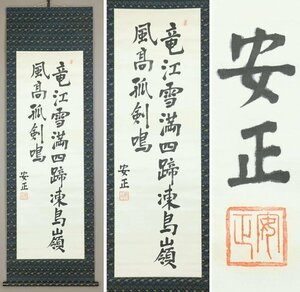 竜江雪満四蹄凍烏嶺
風高孤剣鳴
安正
竜江雪満四蹄凍烏嶺
風高孤剣鳴
安正
安正
安正